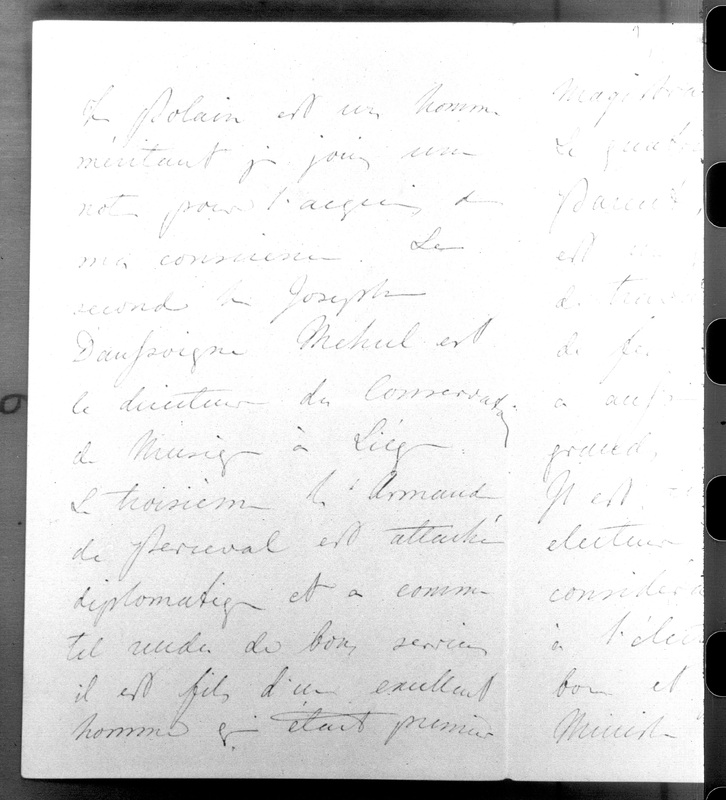 Polain est un homme
méritant je joins une
note pour l'acquis de
ma conscience. Le
second Mr Joseph
Daussoigne Mehul est
le directeur du Conservatoire
de Musique à Liége.
Le troisième Mr Armand
de Perceval est attaché
diplomatique et a comme
tel rendu de bons services
il est fils d'un excellent
homme qui était premier
Magistra
Le quatri
Parent,
est
de trava
de fer
a aussi
grand,
Il est
electeur
considéra
à l'élec
bon et
Ministre